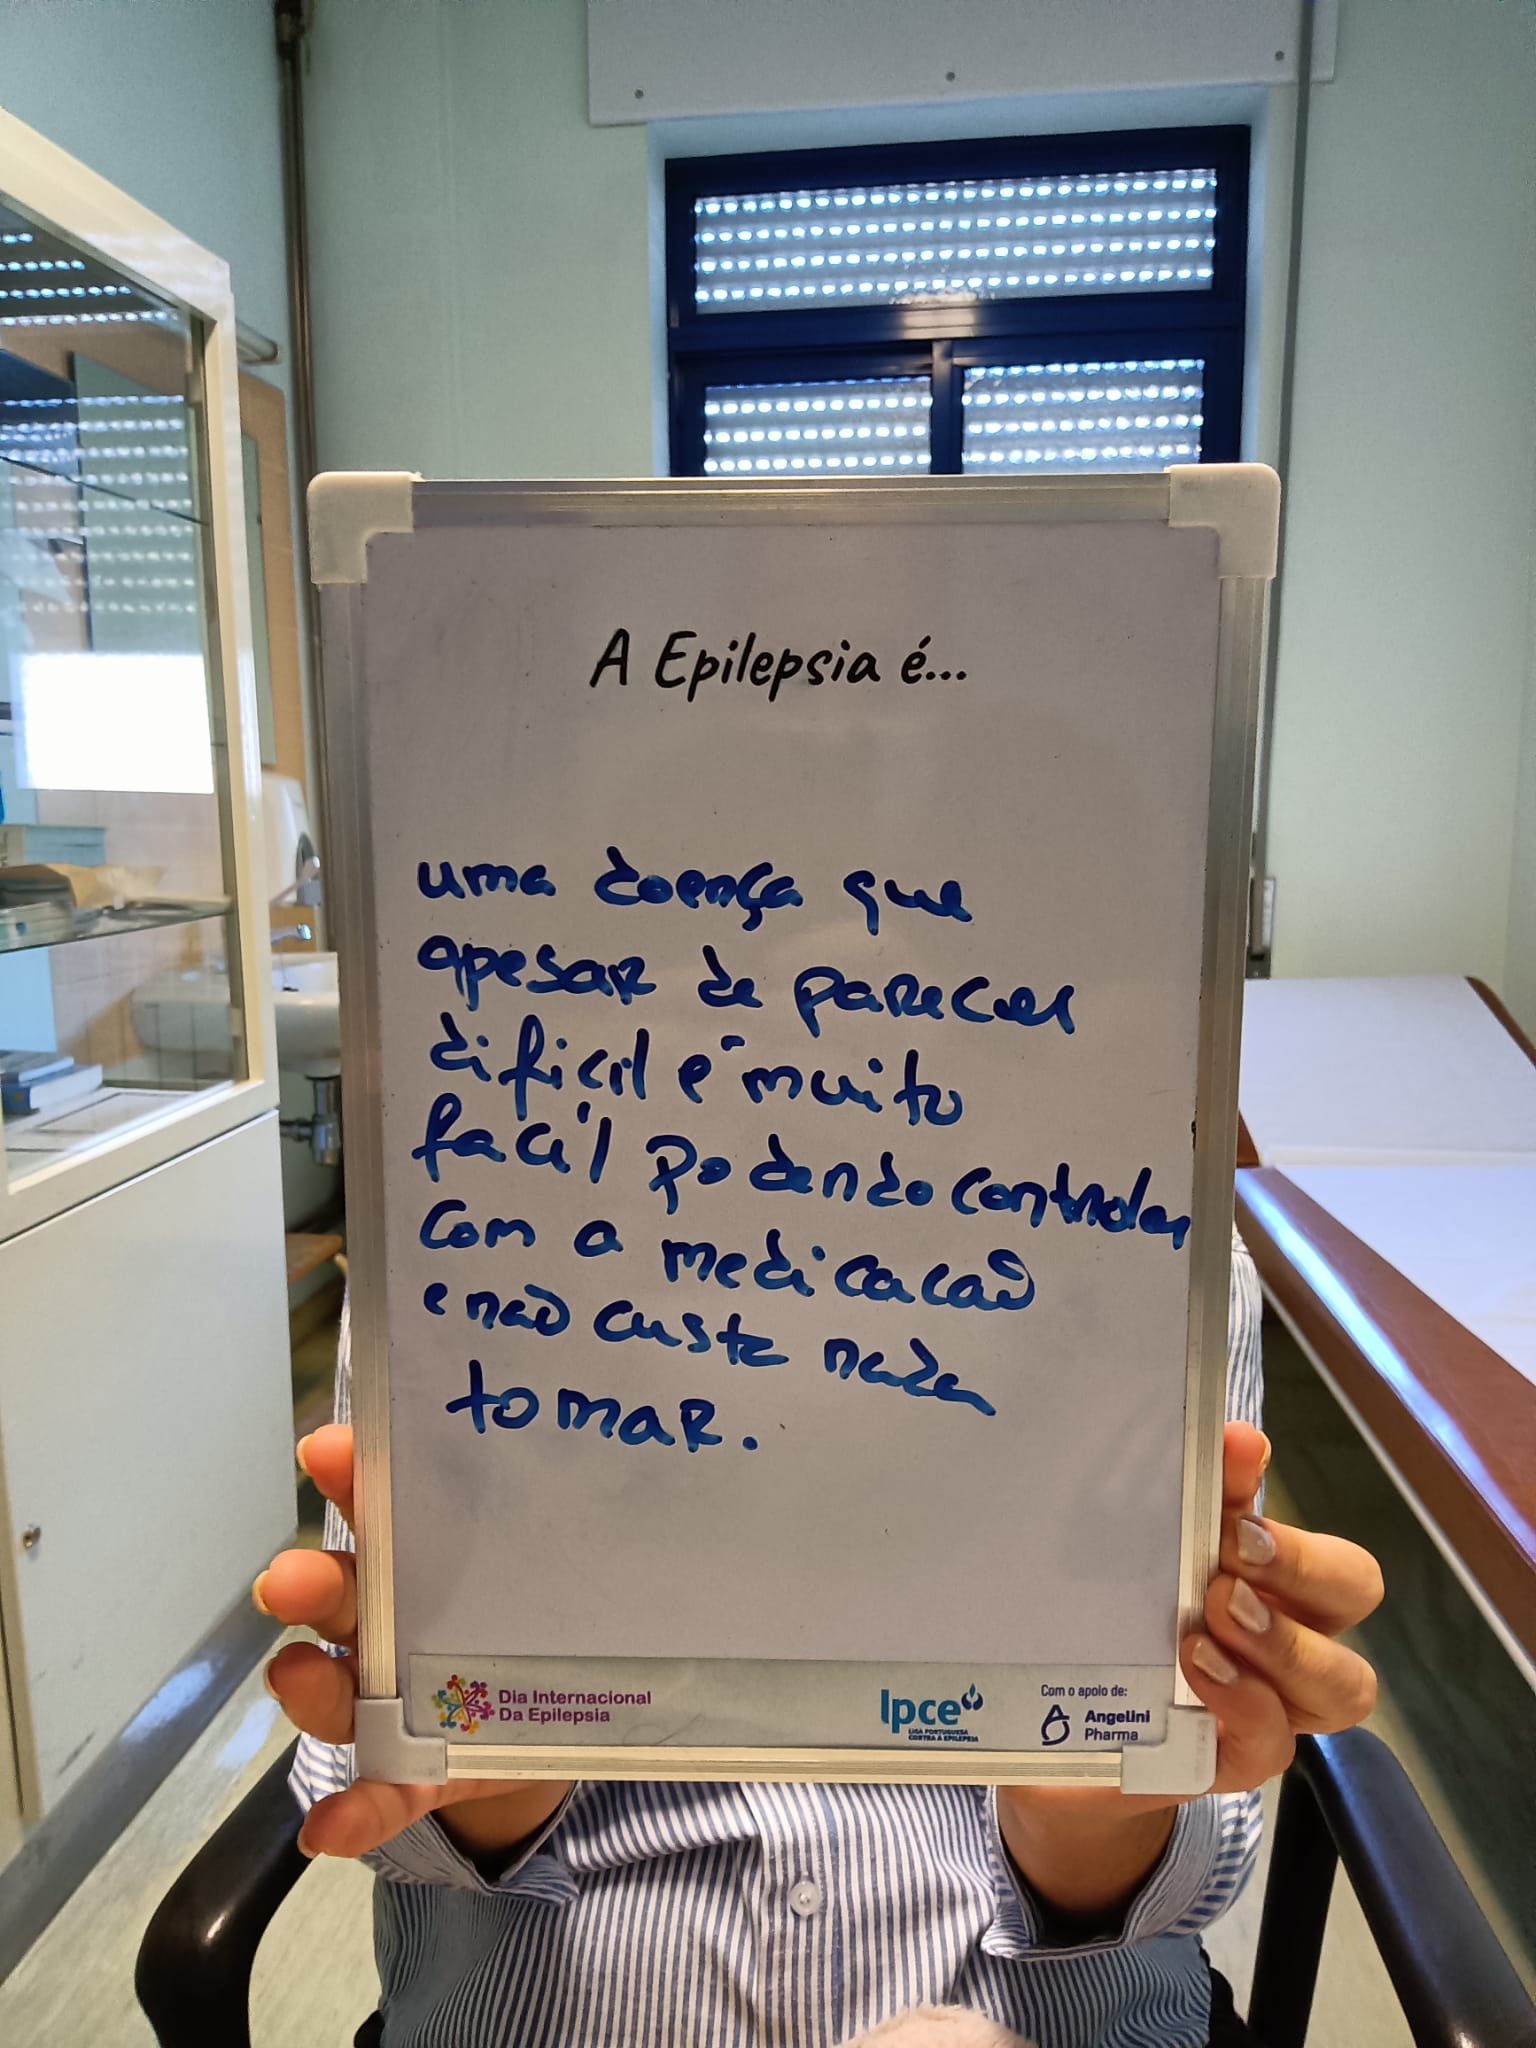 A Epilepsia é...
uma doença que
apesar de parecer
dificil é muito
facíl podendo controlar
com a medicacaõ
e não custa nada
tomar.
Dia Internacional
Da Epilepsia
lpce
LIGA PORTUGUESA
CONTRA A EPILEPSIA
Com o apoio de:
Angelini
Pharma